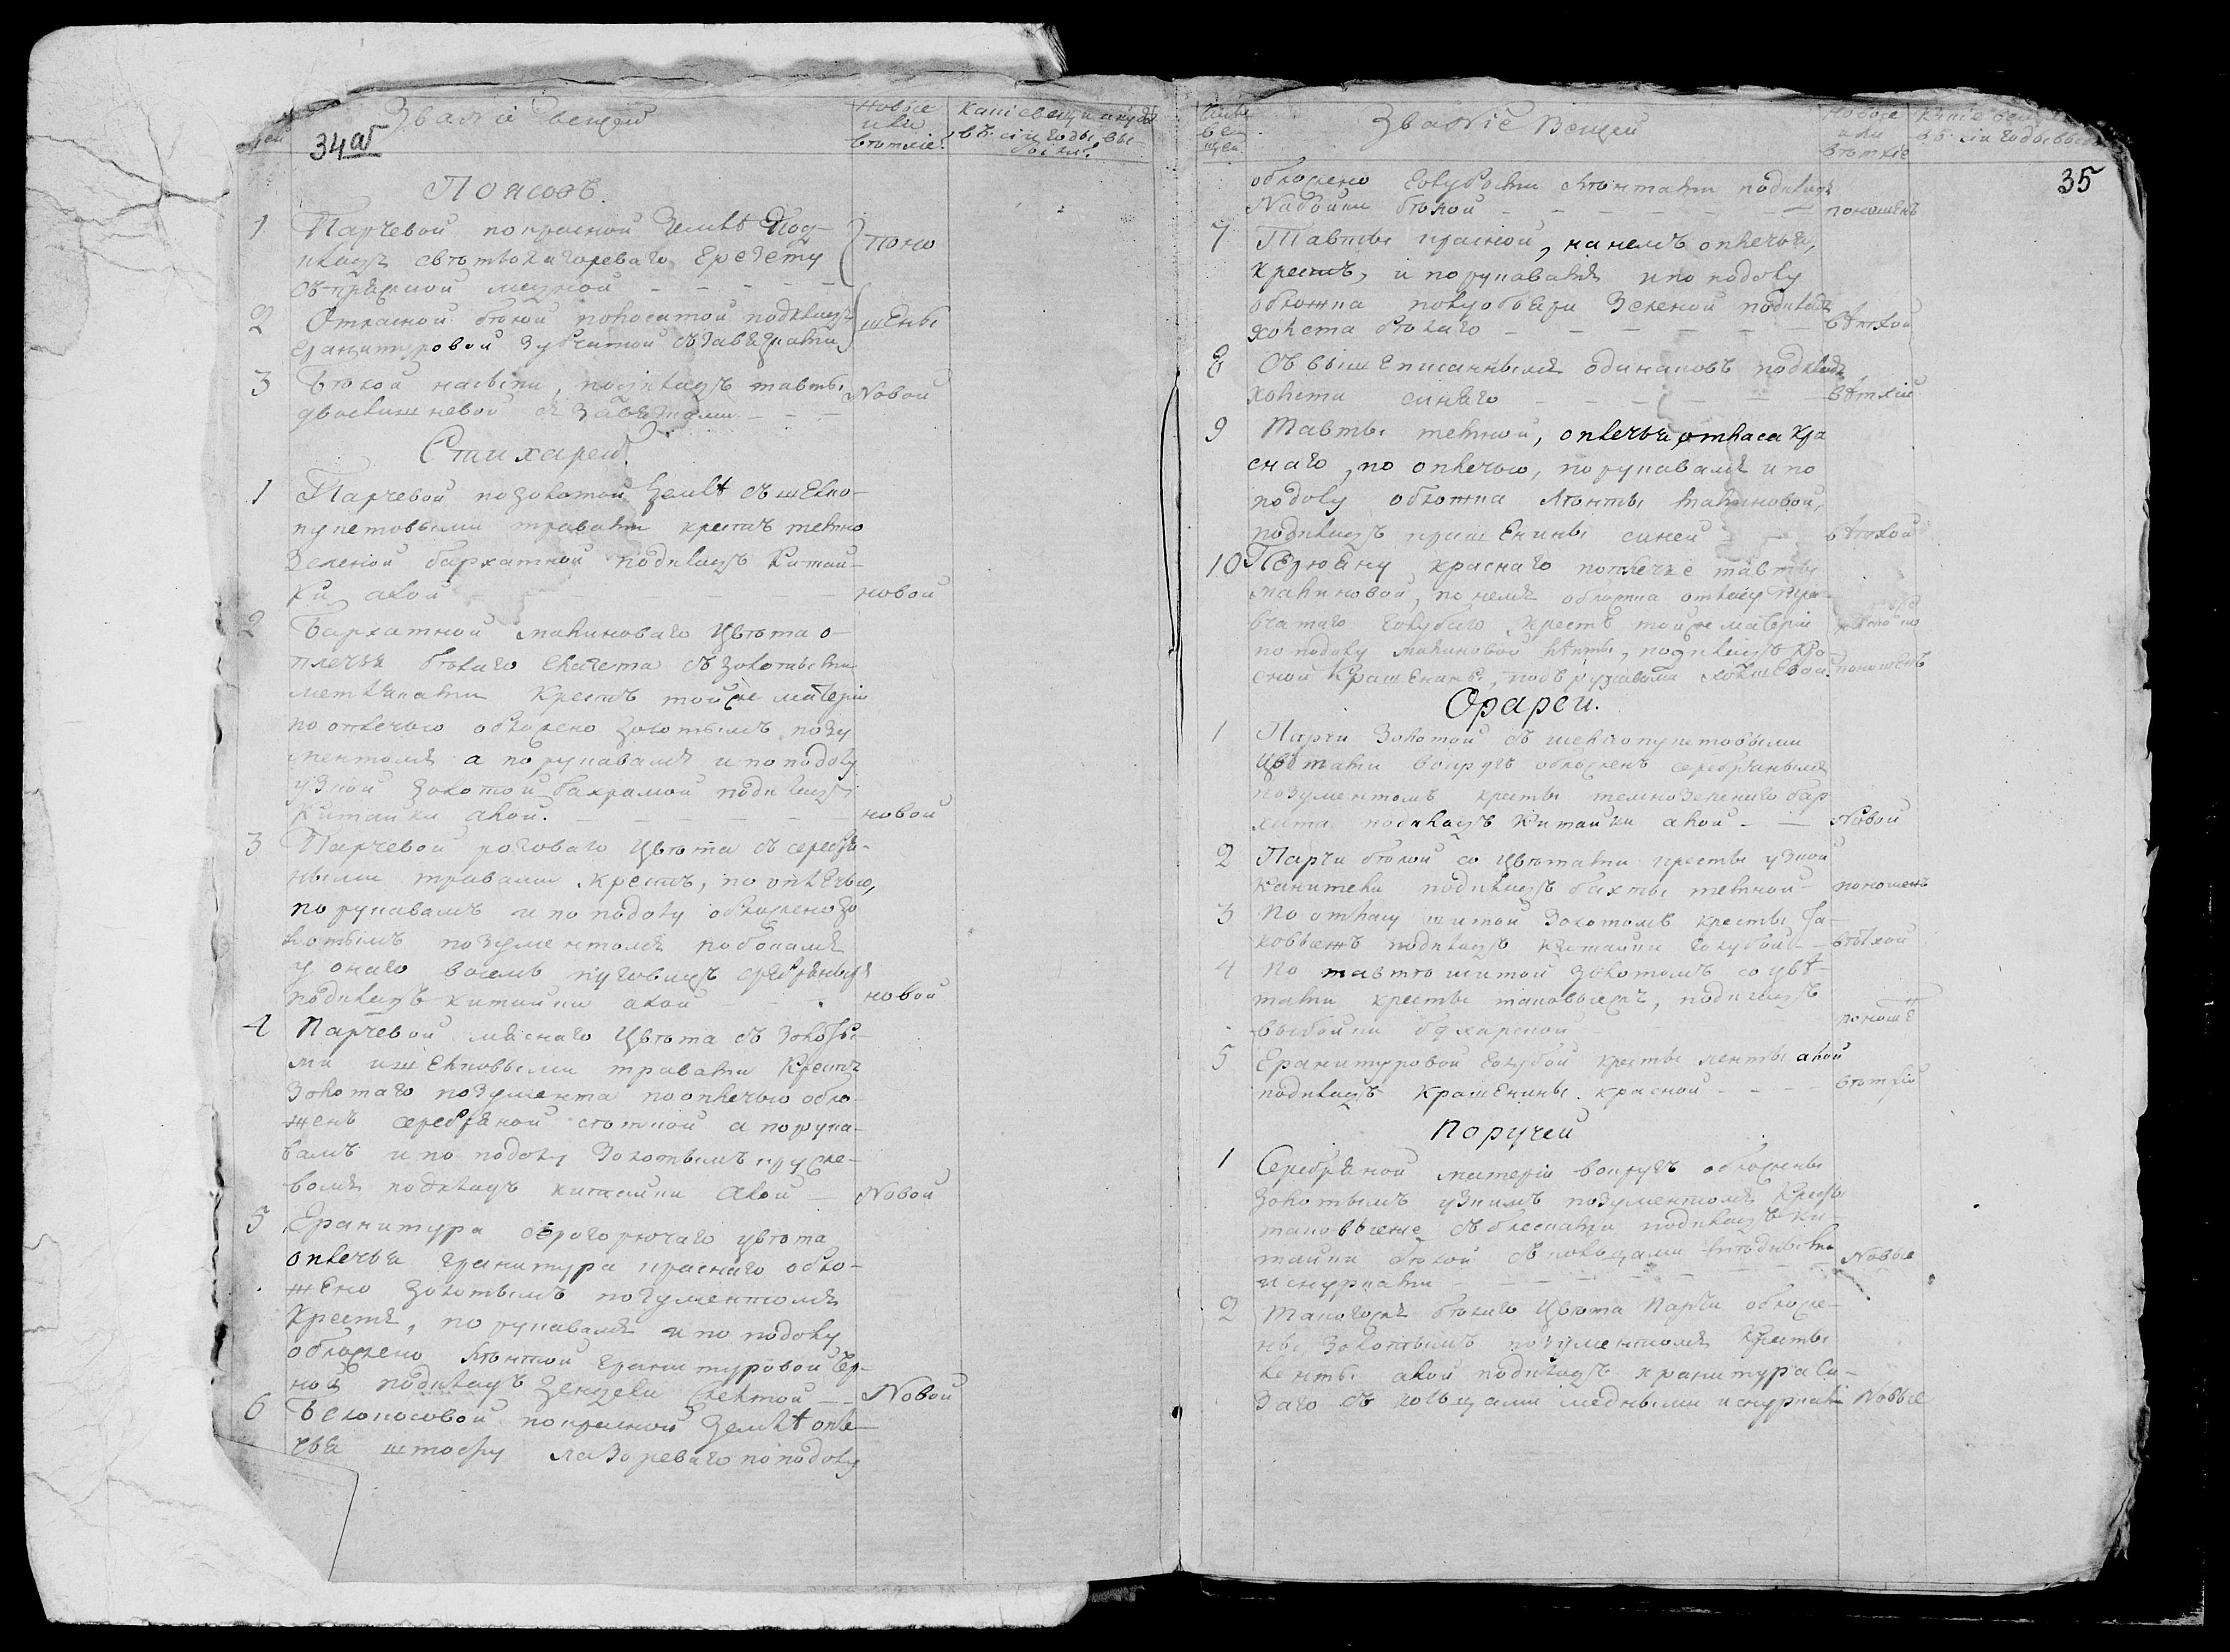 Званіе вещей
Новые
или
ветхіе.
34 об
Поясовъ.
1 Парчевой по красной землѣ под-
кладъ свѣтлолазореваго грезету
съ пряжкой медной
поно
2 Отласной бѣлой полосатой подкладъ
гранитуровой зубчатой съ завязками
шены
3 Бѣлой насыпи, подкладъ тавты
двоеличневой съ завязками
новой
Стихарей.
1 Парчевой по золотой землѣ съ шелко-
пунетовыми травами крестъ темно
зеленой бархатной подкладъ Китай-
ки алой
новой
2 Бархатной малиноваго цвѣта о-
плечья бѣлаго глазета съ золотыми
крестъ той же матеріи
по оплечью обложено золотымъ позу
ментомъ а по рукавамъ и по подолу
узкой золотой бахрамой подкладъ
Китайки алой.
новой
3 Парчевой розоваго цвѣта съ серебря-
ными травами крестъ, по оплечью,
по рукавамъ и по подолу обложено зо
лотымъ позументомъ по бокамъ
у онаго восемь пуговицъ
подкладъ китайки алой
новой
4 Парчевой мяснаго цвѣта съ
ми и шелковыми травами Крестъ
золотаго позумента по оплечью обло-
женъ серебряной сѣткой а по рука-
вамъ и по подолу золотымъ круже-
вомъ подкладъ китайки алой
новой
5 Гранитура цвѣта
оплечья гранитура краснаго обло-
жено золотымъ позументомъ
Крестъ, по рукавамъ и по подолу
обложено лѣнтой гранитуровой чер-
ной подкладъ зендели желтой
новой
6 по красной землѣ опле-
чья штофу лазореваго по подолу
Число
ве
щей
Званіе Вещей
Новые
или
ветхіе
35
обложено голубыми лѣнтами подкладъ
Набойки бѣлой
поношенъ
7 Тавты красной, на немъ оплечья,
крестъ, и по рукавамъ и по подолу
обложка полуобъяри зеленой подкладъ
холста бѣлаго
вѣтхой
8 Съ вышеписаннымъ одинаковъ подкладъ
холста синяго
вѣтхій
9 Тавты темной, оплечья отласа кра
снаго, по оплечью, по рукавамъ и по
подолу обложка лѣнты малиновой,
подкладъ крашенины синей
вѣтхой
10 краснаго оплечье тавты
малиновой, по немъ обложка отласу тра-
вчатаго голубаго крестъ той же матеріи
по подолу малиновой лѣнты, подкладъ кра
сной Крашенины,
поношенъ
Орарей.
1 Парчи золотой съ шелкопунетовыми
цвѣтами вокругъ обложенъ серебрянымъ
позументомъ кресты темнозеленаго бар
хата подкладъ Китайки алой
новой
2 Парчи бѣлой со цвѣтами кресты узкой
канители подкладъ бахты темной
поношенъ
3 По отласу шитой золотомъ кресты та-
ковыежъ подкладъ китайки голубой
вѣтхой
4 По тавтѣ шитой золотомъ со цвѣ-
тами кресты таковыежъ, подкладъ
выбойки бухарской
поноше
5 Гранитуровой голубой кресты ленты алой
подкладъ крашенины красной
вѣтхій
Поручей
1 Серебряной матеріи вокругъ обложены
золотымъ узкимъ позументомъ Кресты
таковыеже съ блесками подкладъ ки-
тайки бѣлой съ кольцами мѣдными
и снурками
новые
2 Таковожъ бѣлаго цвѣта парчи обложе-
ны золотымъ позументомъ Кресты
ленты алой подкладъ гранитура си-
заго съ кольцами медными и снурками
новые